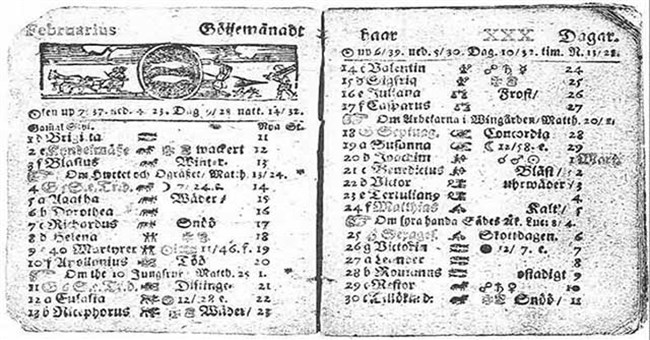 Februarius Göjemånadt
Solen up 7/37. ned. 4. 23. Dag 9/28 natt. 14/32.
Gamal Styl. Nya St.
1 d Brigita 11
2 e Kyndelmäss wackert 12
3 f Blasius Winter. 13
Om Hwetet och Ogräset/ Matth. 13/24.
4 G 5 S. e. Tr. D. 7/24. e. 14
5 a Agatha Wäder/ 15
6 b Dorothea 16
7 c Richardus Snöö 17
8 d Helena 18
9 e 40 Martyrer 11/46. f. 19
10 f Apollonius Töö 20
Om the 10 Jungfrur Matth. 25 1.
11 G 6 S. e. Tr. D. Distinge 21
12 a Eulalia 12/28 e. 22
13 b Nicephorus Wäder/ 23
haar XXX Dagar.
up 6/39. ned. 5/30. Dag. 10/32. tim. N. 13/28.
14 c Valentin 24
15 d Sigfrid 25
16 e Juliana Frost/ 26
17 f Casparus 27
Om Arbetarna i Wingården/ Matth. 20/1
18 G Septuag. Concordia 28
19 a Susanna 12/58. e. 29
20 b Joachim 1 Mart.
21 c Benedictus Bläst/ 2
22 d Victor uhrwäder/ 3
23 e Tertulian 4
24 f Matthias Kalt/ 5
Om fyra handa Sädes Åk. Luc. 8/4.
25 G Sexages. Skottdagen. 6
26 g Victorin 12/7. e. 7
27 a Leander 8
28 b Romanus ostadigt 9
29 c Nestor 10
30 c Tillökn d. Snöö/ 11